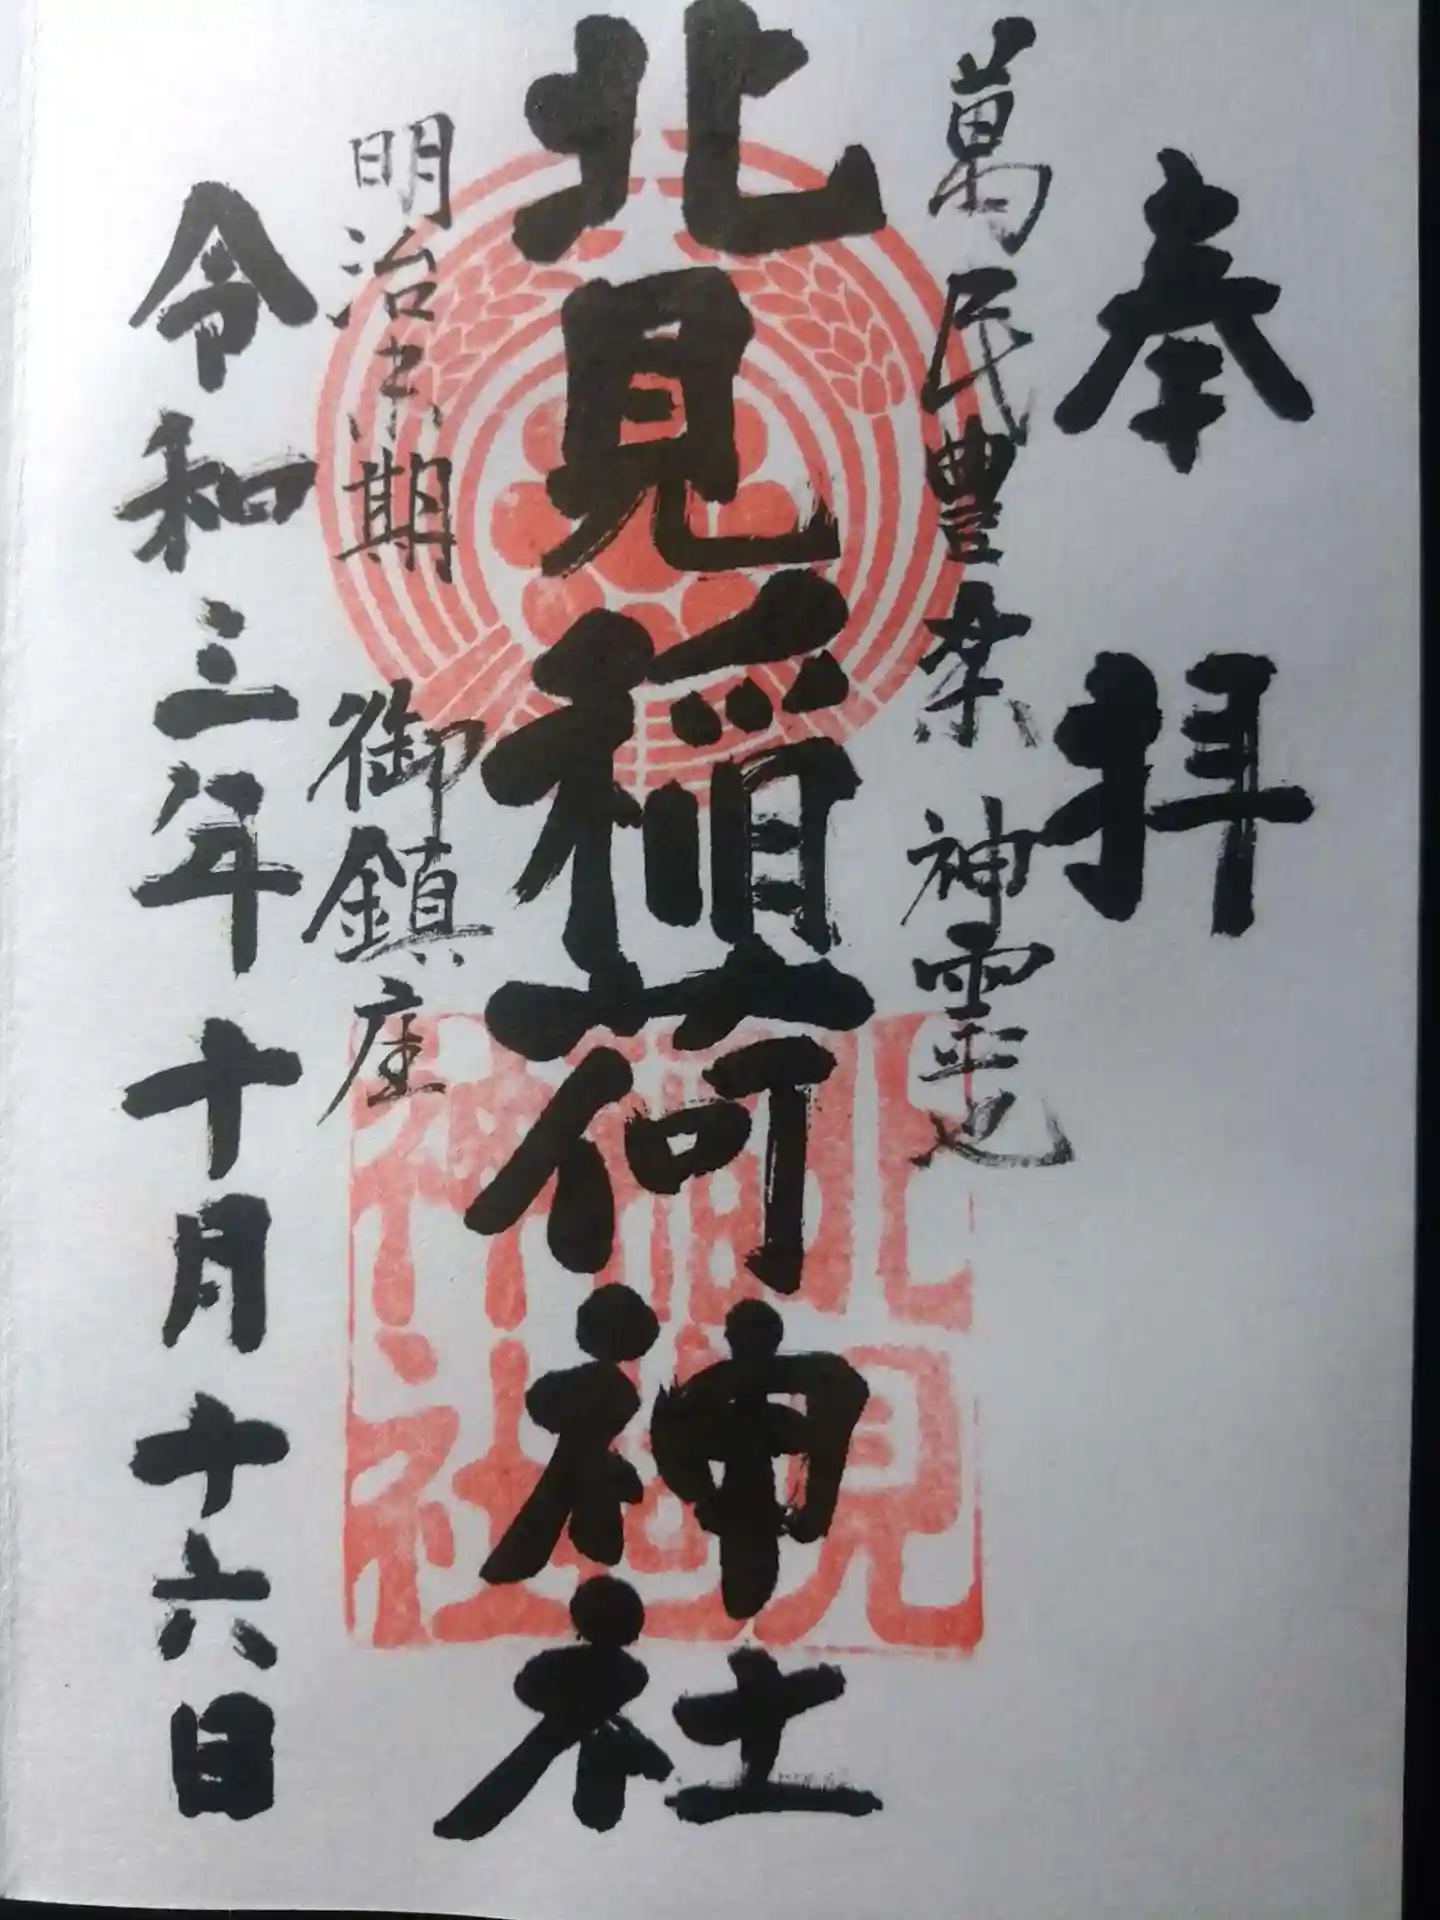 奉拝
萬民豊楽 神霊也
北見稲荷神社
明治末期 御鎮座
令和三年十月十六日
北見稲荷神社